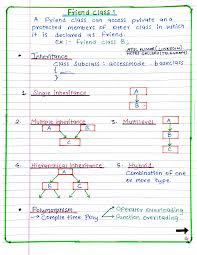 Friend class :
A Friend class can access private and
protected members of other class in which
it is declared as friend.
ex :- friend class B;
Inheritance
class Subclass : accessmode baseclass
{
}
1. Single inheritance
A
B
2. Multiple inheritance
A B
C
3. Multilevel
A
B
C
4. Hierarchical Inheritance
A
B C
5. Hybrid
Combination of one
or more type.
Polymorphism
→ Compile time Poly
→ Operator overloading
→ Function overloading.